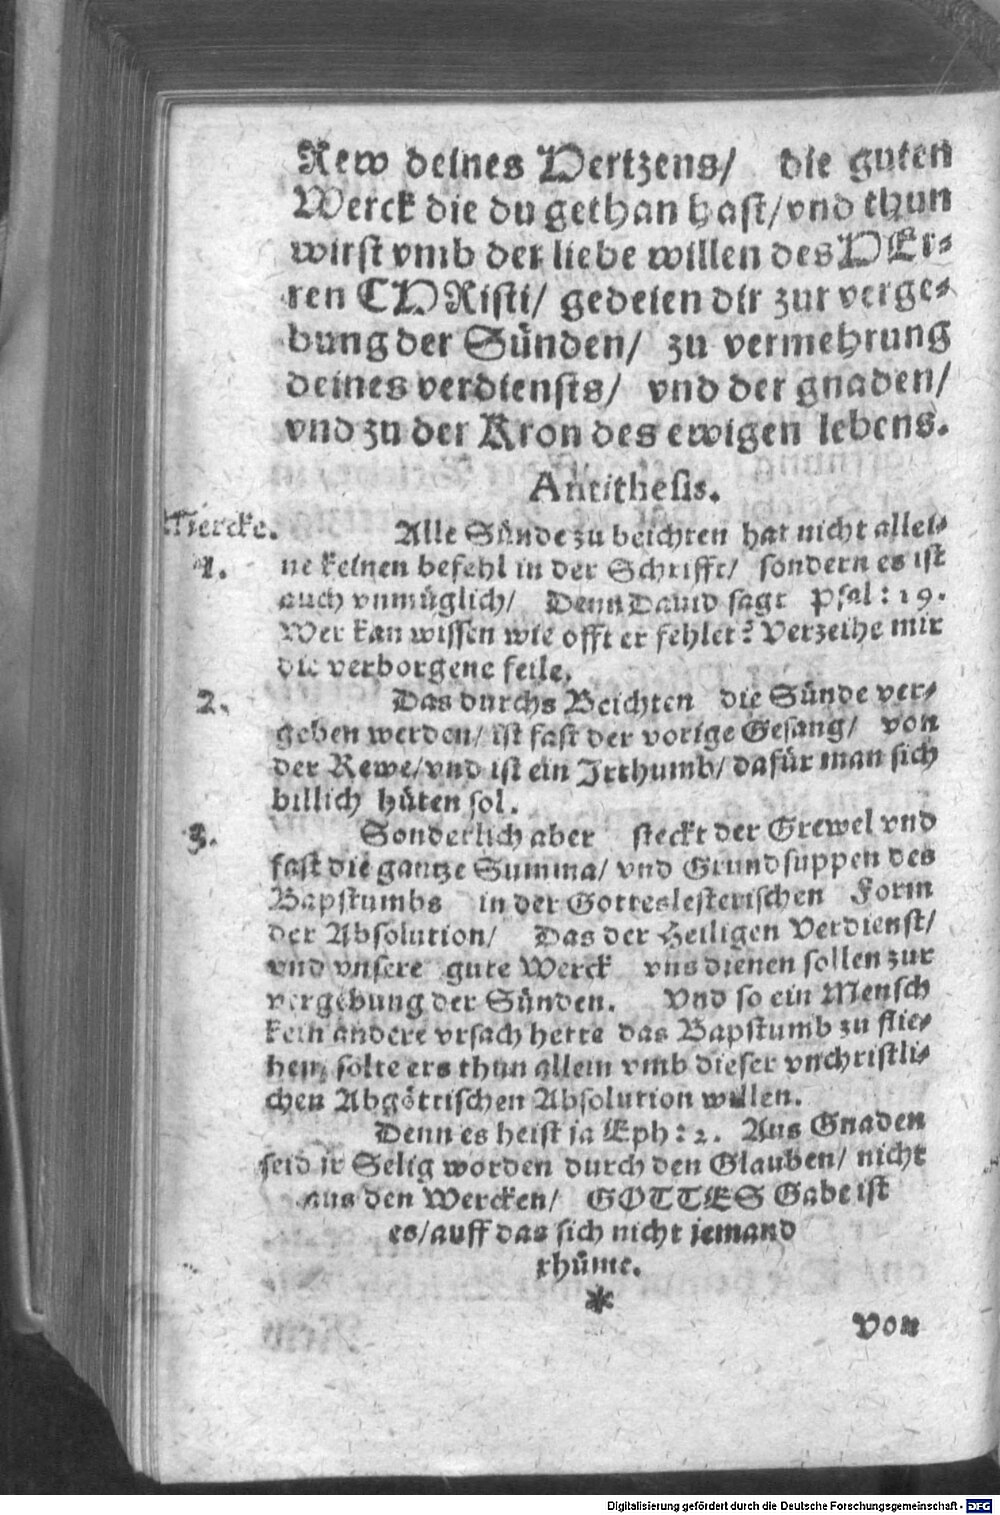 Rew deines Hertzens/ die guten
Werck die du gethan hast/ vnd thun
wirst vmb der liebe willen des HEr-
ren CHRisti/ gedeien dir zur verge-
bung der Sünden/ zu vermehrung
deines verdiensts/ vnd der gnaden/
vnd zu der Kron des ewigen lebens.
Antithesis.
Mercke. Alle Sünde zu beichten hat nicht allei-
1. ne keinen befehl in der Schrifft/ sondern es ist
auch vnmüglich/ Denn Dauid sagt Psal: 19.
Wer kan wissen wie offt er fehlet? Verzeihe mir
die verborgene feile.
2. Das durchs Beichten die Sünde ver-
geben werden/ ist fast der vorige Gesang/ von
der Rewe/ vnd ist ein Irthumb/ dafür man sich
billich hüten sol.
3. Sonderlich aber steckt der Grewel vnd
fast die gantze Summa/ vnd Grundsuppen des
Bapstumbs in der Gotteslesterischen Form
der Absolution/ Das der Heiligen Verdienst/
vnd vnsere gute Werck vns dienen sollen zur
vergebung der Sünden. Vnd so ein Mensch
kein andere vrsach hette das Bapstumb zu flie-
hen, solte ers thun allein vmb dieser vnchristli-
chen Abgöttischen Absolution willen.
Denn es heist ja Eph: 2. Aus Gnaden
seid ir Selig worden durch den Glauben/ nicht
aus den Wercken/ GOTTES Gabe ist
es/ auff das sich nicht jemand
rhüme.
*
Von
Digitalisierung gefördert durch die Deutsche Forschungsgemeinschaft - DFG